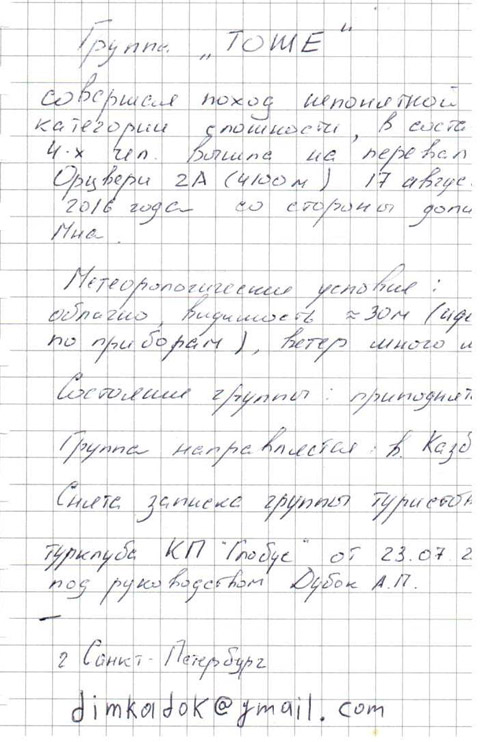 Группа „ТОШЕ"
совершая поход непонятной
категории сложности, в соста
4-х чел. вышла на перевал
Орцвери 2А (4100м) 17 авгус
2016 года со стороны доли
Мна.
Метеорологические условия:
облачно, видимость ≈30м (иде
по приборам), ветер много и
Состояние группы: приподнята
Группа направляется: в. Казб
Снята записка группы туристов
турклуба КП "Глобус" от 23.07.2
под руководством Дубок А.П.
г Санкт-Петербург
dimkadok@gmail.com